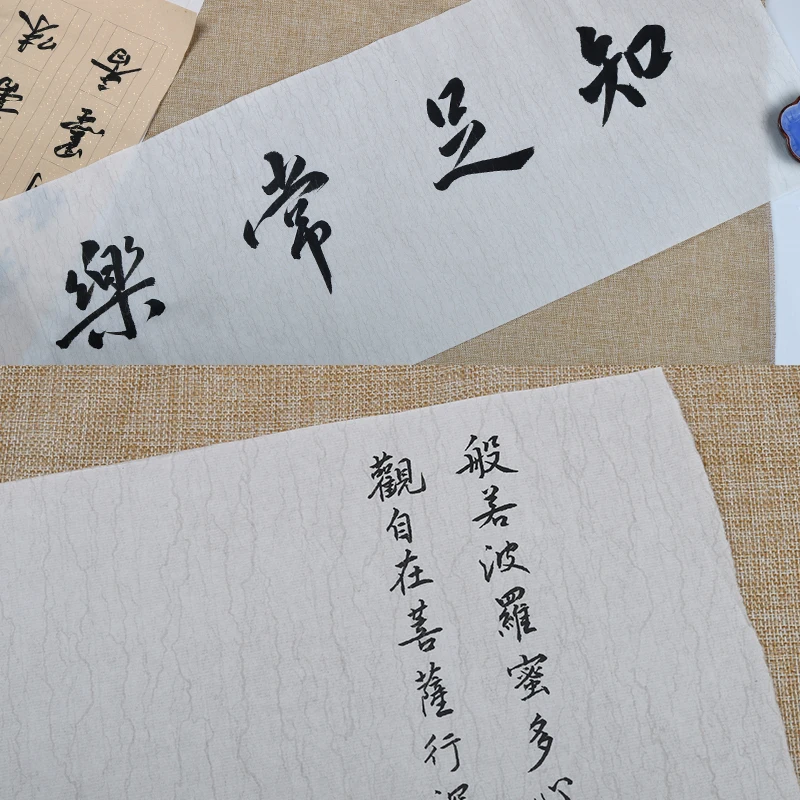 知足常樂
般若波羅蜜多心
觀自在菩薩行深
墨香
味